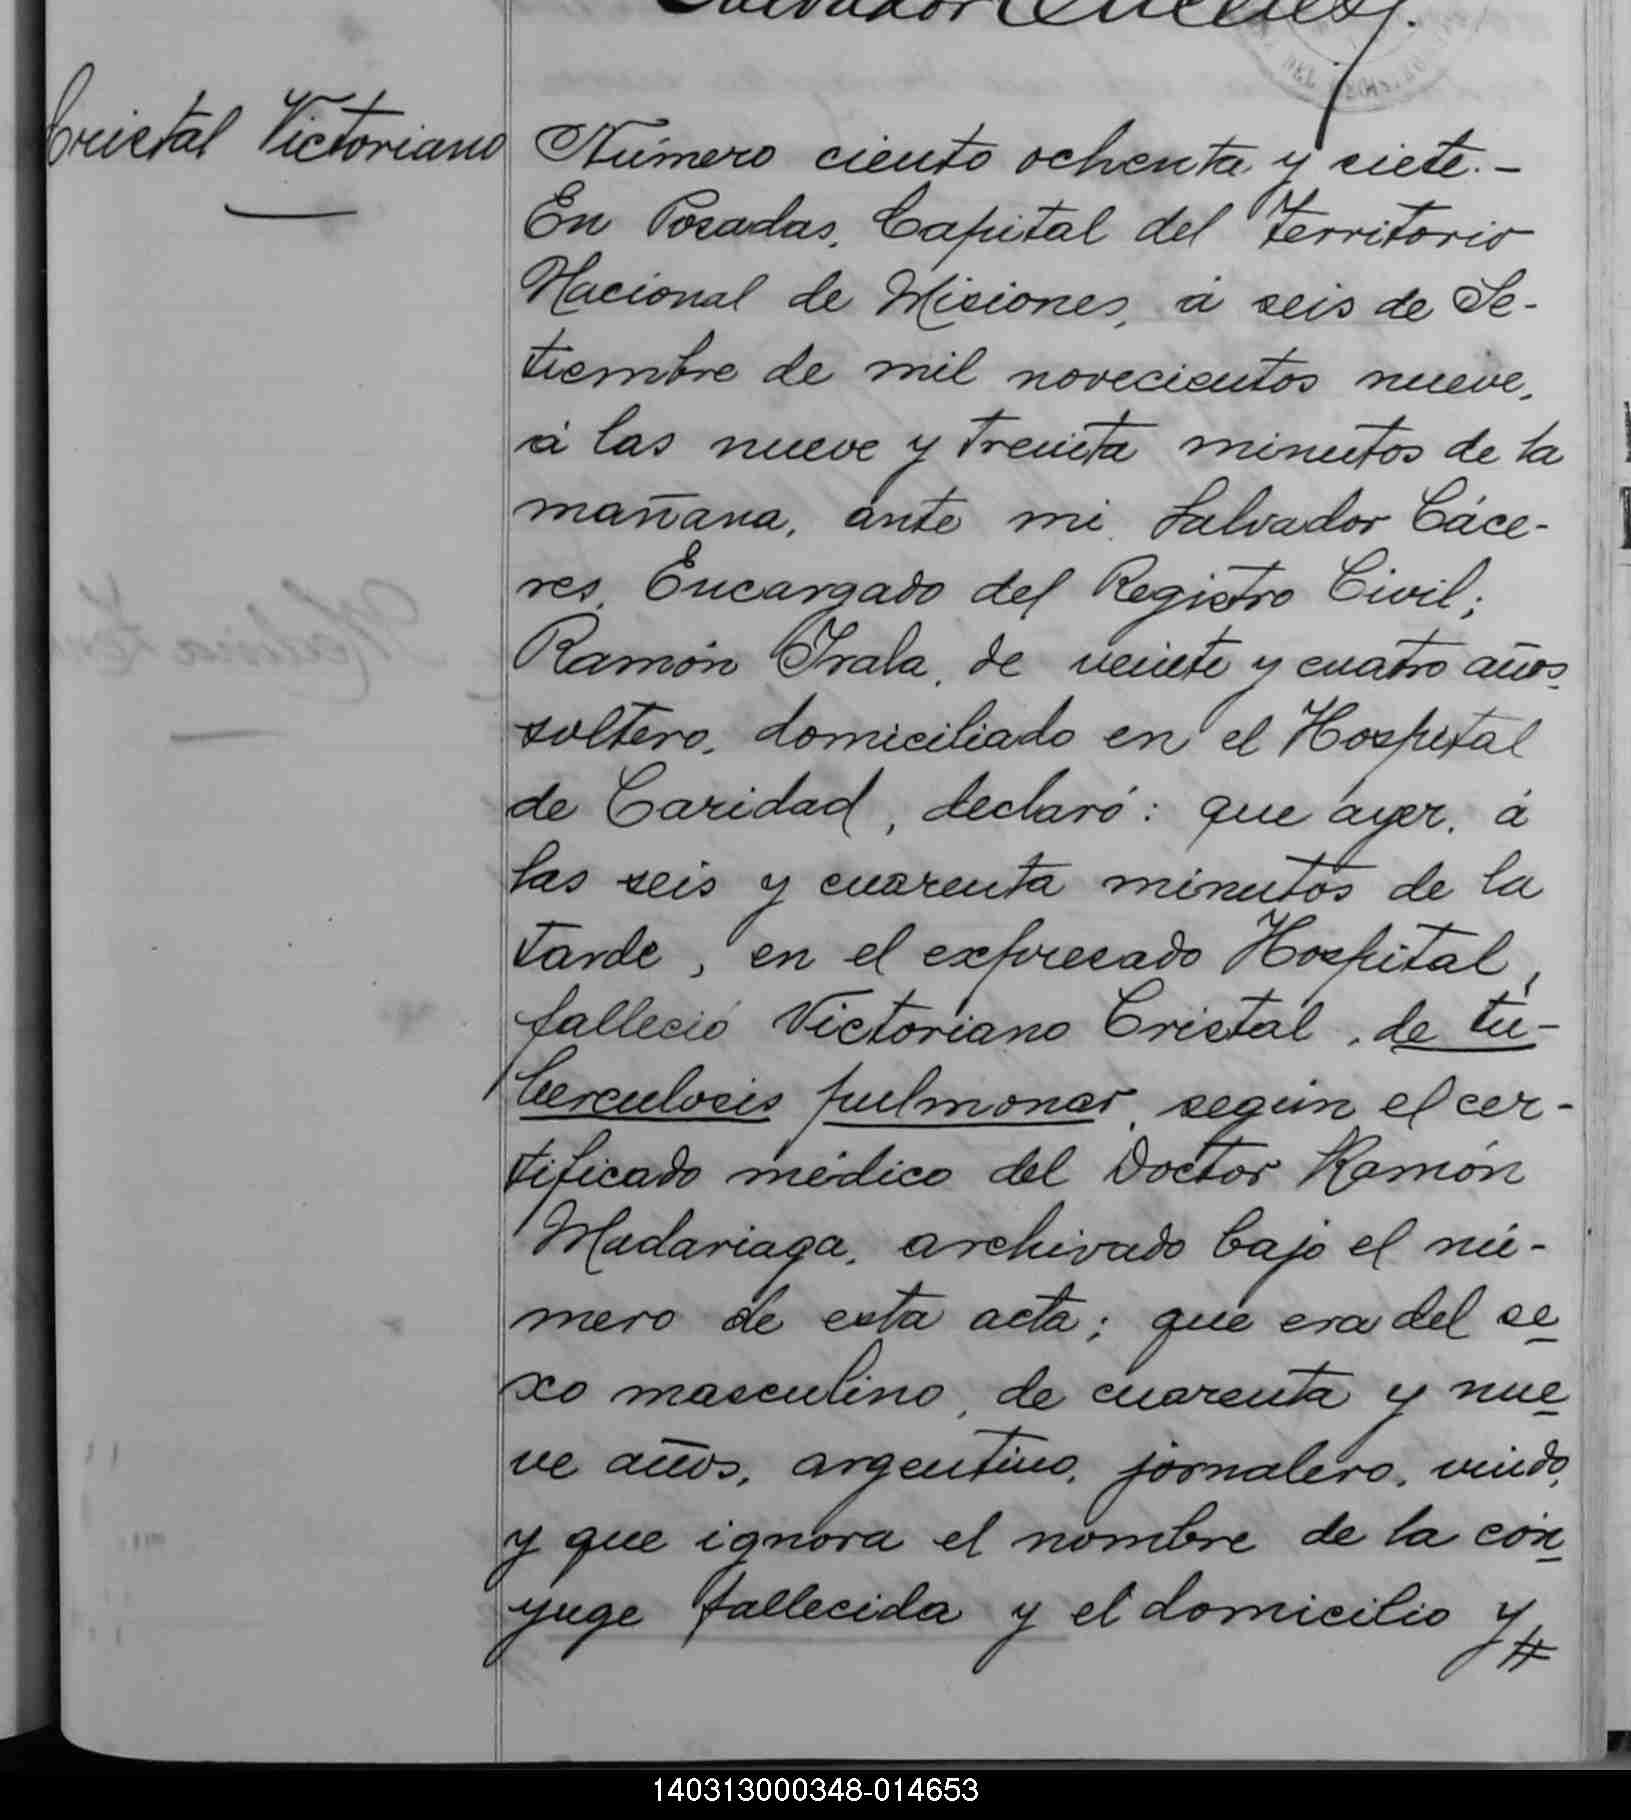 Salvador
Cristal Victoriano
Número ciento ochenta y siete.-
En Posadas, Capital del Territorio
Nacional de Misiones, á seis de Se-
tiembre de mil novecientos nueve,
á las nueve y treinta minutos de la
mañana, ante mi, Salvador Cáce-
res, Encargado del Registro Civil;
Ramón Irala, de veinte y cuatro años,
soltero, domiciliado en el Hospital
de Caridad, declaró: que ayer, á
las seis y cuarenta minutos de la
tarde, en el expresado Hospital,
falleció Victoriano Cristal, de tu-
berculosis pulmonar, según el cer-
tificado médico del Doctor Ramón
Madariaga, archivado bajo el nú-
mero de esta acta; que era del se
xo masculino, de cuarenta y nue
ve años, argentino, jornalero, viudo,
y que ignora el nombre de la cón
yuge fallecida y el domicilio y #
140313000348-014653